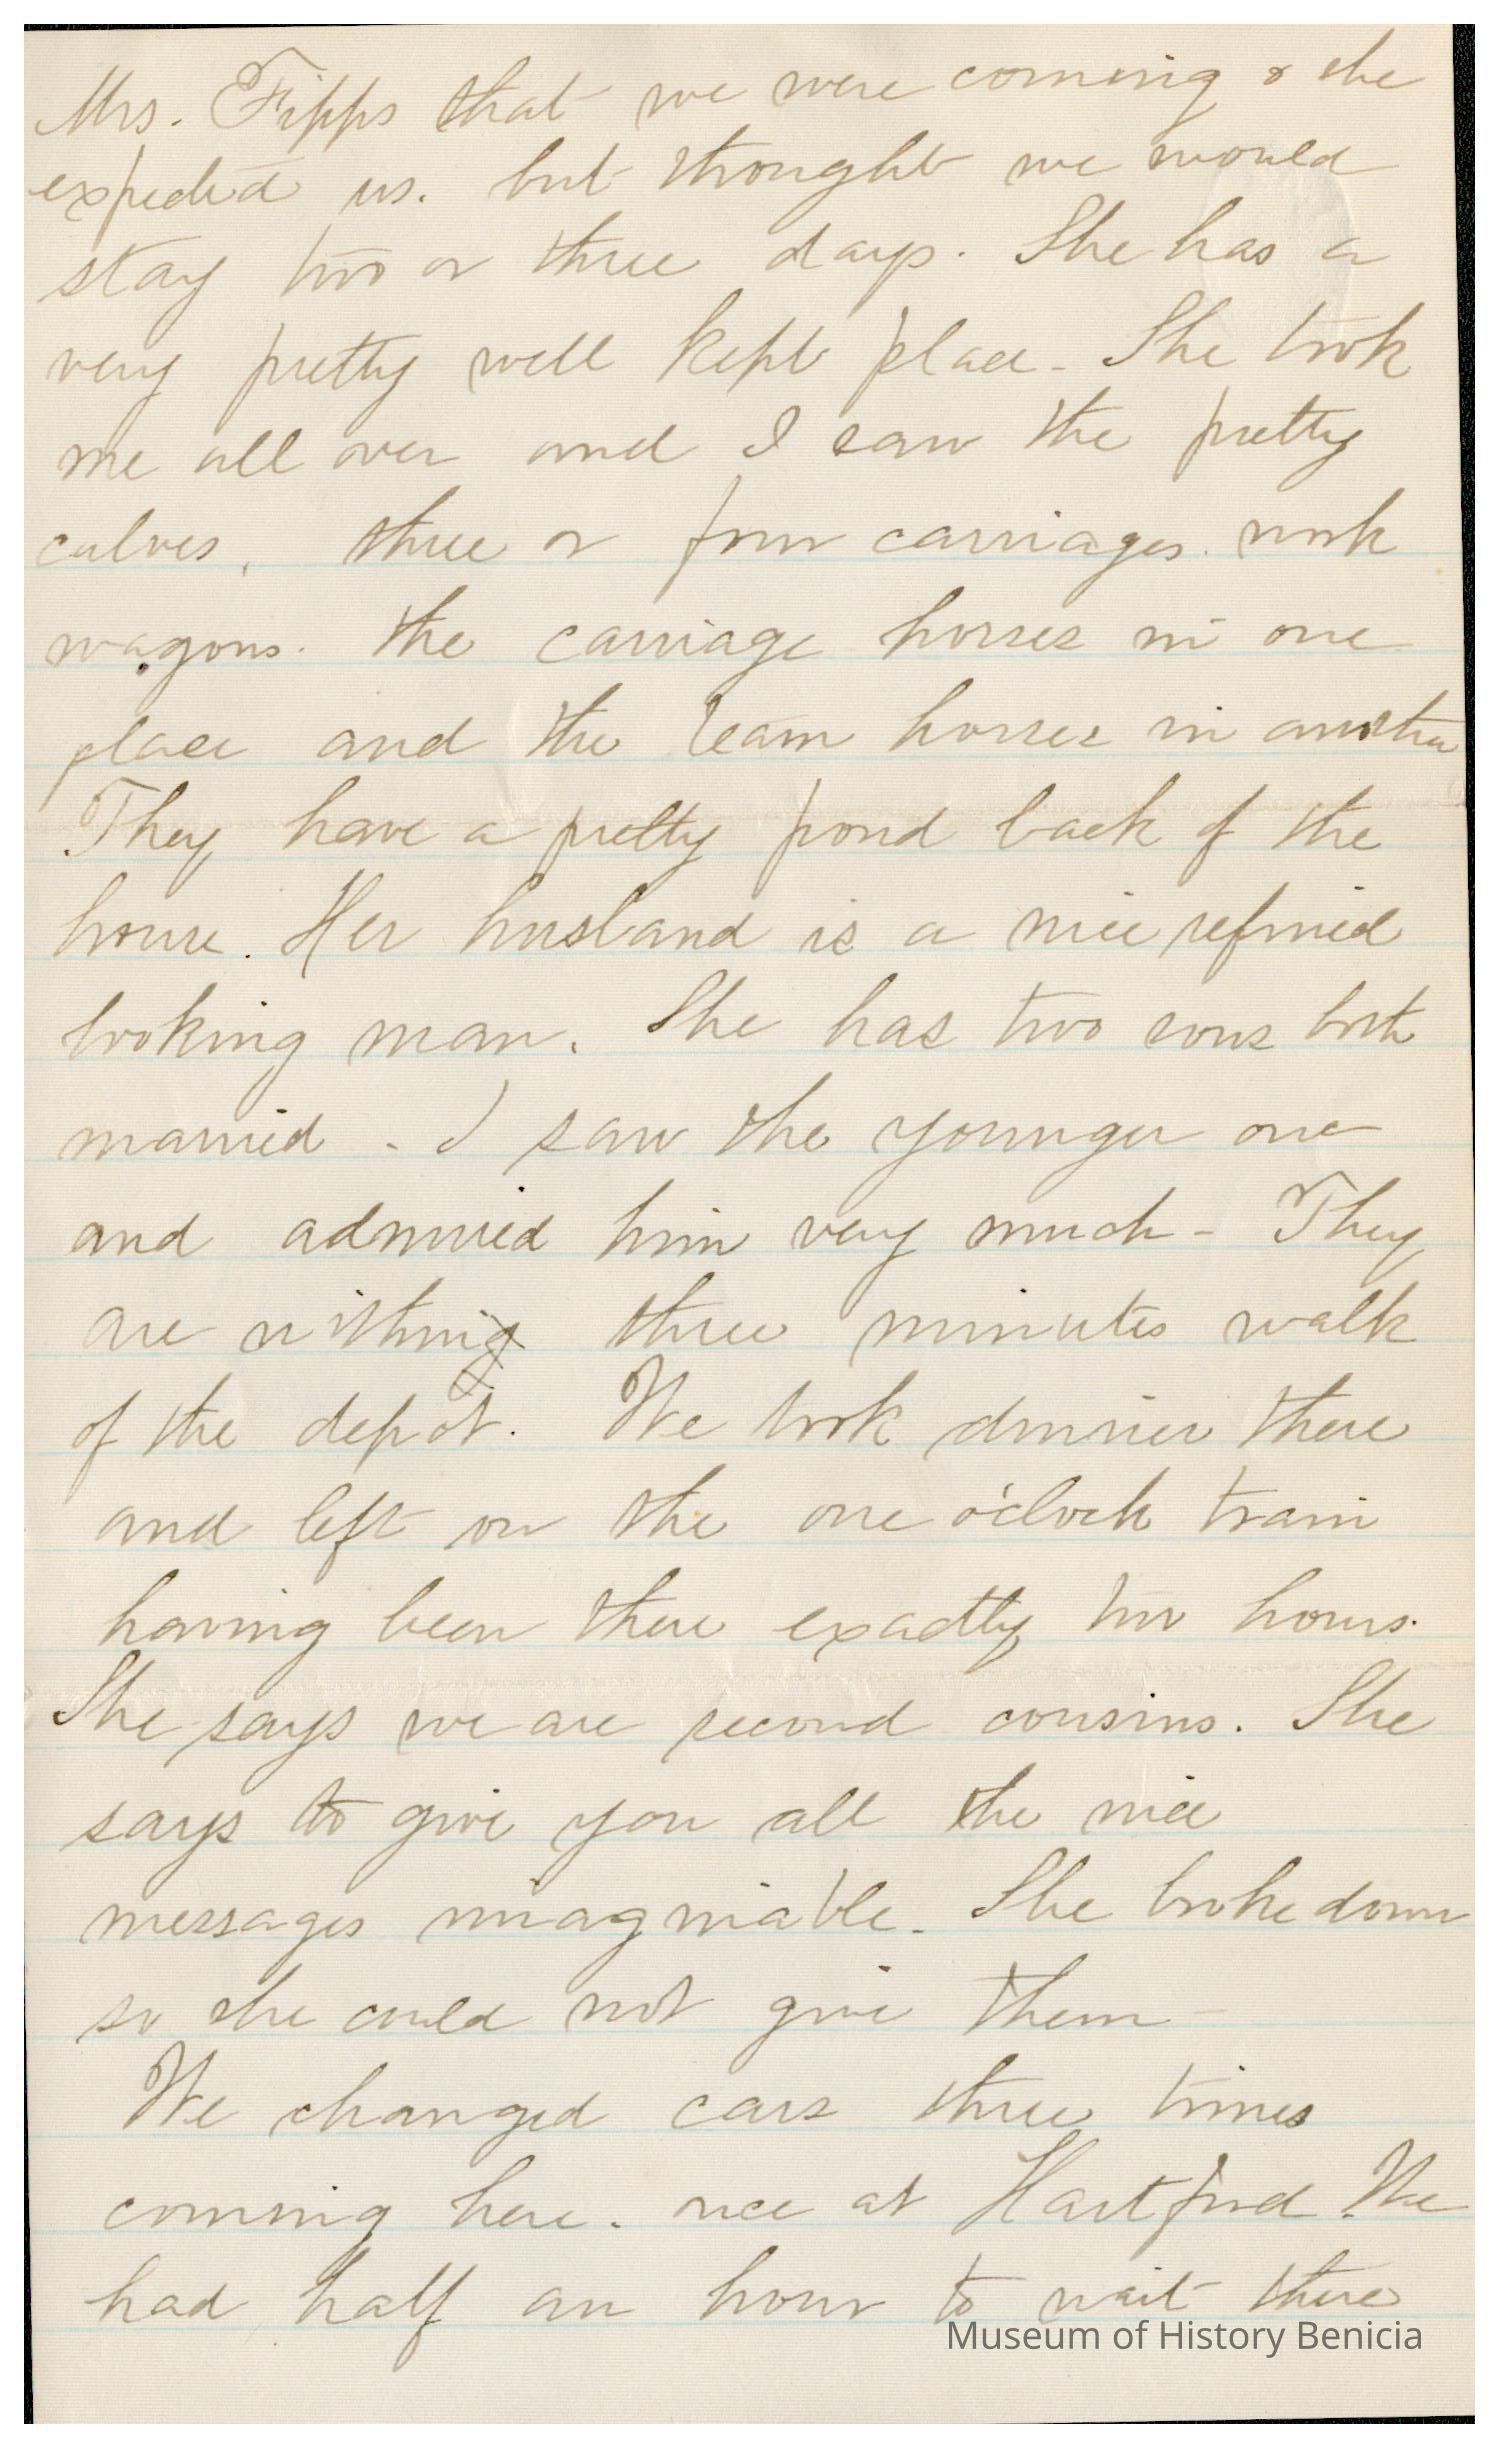 Mrs. Fipps that we were coming & she
expected us. but thought we would
stay two or three days. She has a
very pretty well kept place - She took
me all over and I saw the pretty
calves, three or four carriages. work
wagons. the carriage horses in one
place and the team horses in another
They have a pretty pond back of the
house. Her husband is a nice refined
looking man. She has two sons both
married - I saw the younger one
and admired him very much - They
are within three minutes walk
of the depot. We took dinner there
and left on the one o'clock train
having been there exactly two hours.
She says we are second cousins. She
says to give you all the nice
messages imaginable. She broke down
so she could not give them -
We changed cars three times
coming here. once at Hartford. We
had half an hour to wait there
Museum of History Benicia